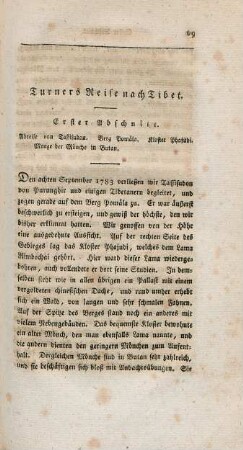 29
Turners Reise nach Tibet.
Erster Abschnitt.
Abreise von Tassisudon. Berg Pomäla. Kloster Phajudi.
Menge der Mönche in Butan.
Den achten September 1783 verließen wir Tassisudon
von Purunghir und einigen Tibetanern begleitet, und
zogen gerade auf dem Berg Pomäla zu. Er war äußerst
beschwerlich zu ersteigen, und gewiß der höchste, den wir
bisher erstiegen hatten. Wir genossen von der Höhe
eine ausgebreitete Aussicht. Auf der rechten Seite des
Gebirges lag das Kloster Phajudi, welches dem Lama
Rimbochai gehört. Hier ward dieser Lama wiederge-
bohren, auch vollendete er dort seine Studien. In dem-
selben sieht man wie in allen übrigen ein Pallast mit einem
vergoldeten chinesischen Dache, und rund umher erhob
sich ein Wald, von langen und sehr schmalen Fahnen.
Auf der Spitze des Berges stand noch ein anderes mit
vielen Nebengebäuden. Das bequemste Kloster bewohnte
ein alter Mönch, den man ebenfalls Lama nannte, und
die andern dienten den geringern Mönchen zum Aufent-
halt. Dergleichen Mönche sind in Butan sehr zahlreich,
und sie beschäftigen sich bloß mit Andachtsübungen. Sie